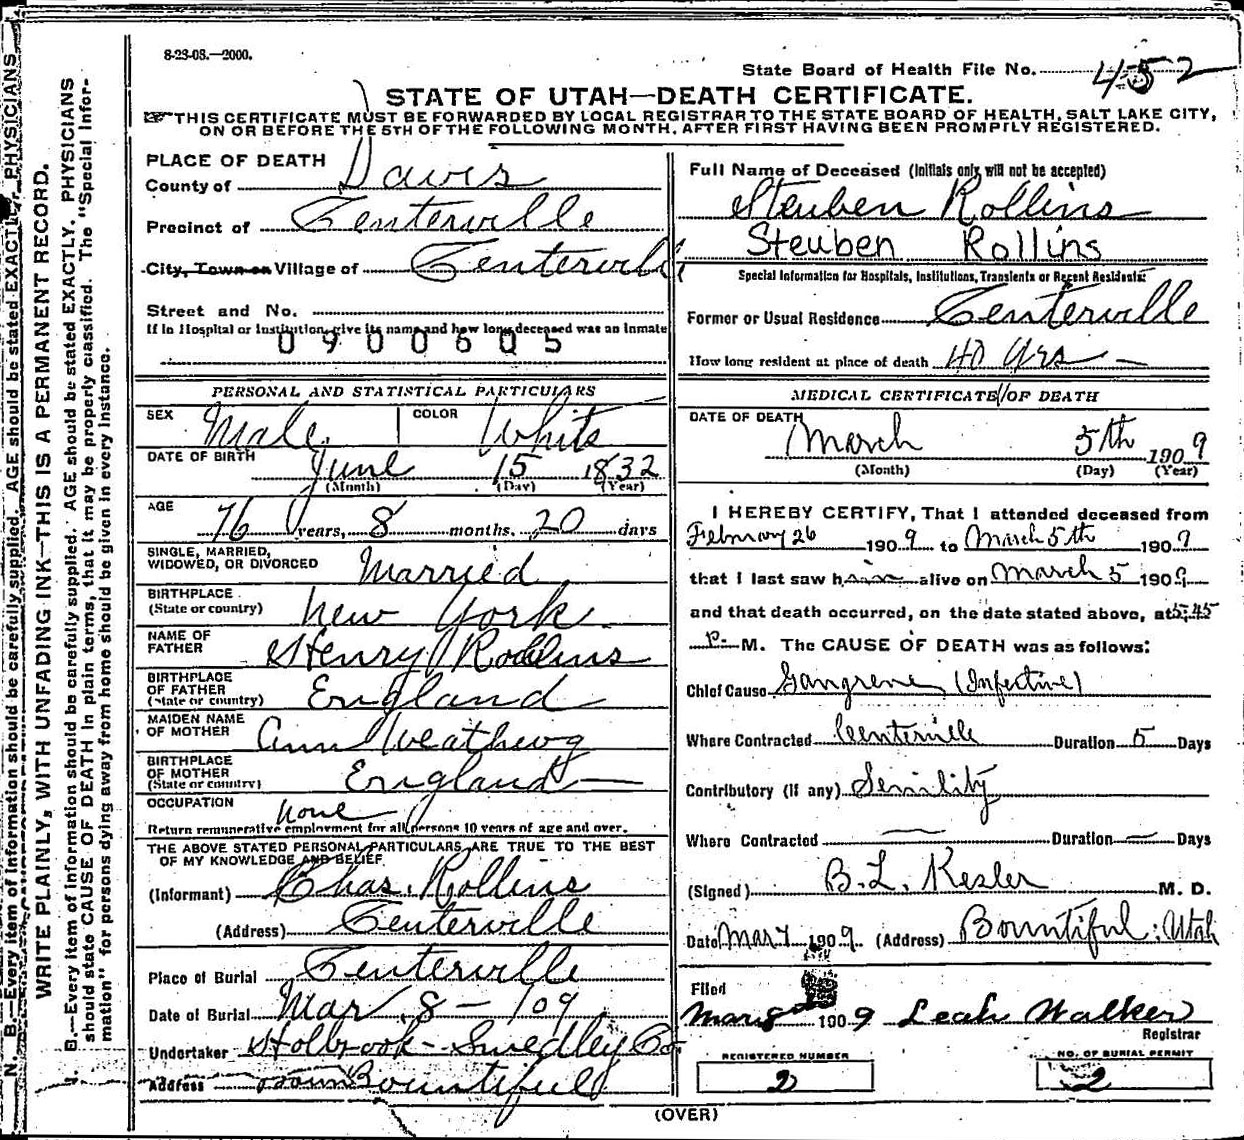 8-23-08.—2000.
State Board of Health File No. 452
STATE OF UTAH—DEATH CERTIFICATE.
THIS CERTIFICATE MUST BE FORWARDED BY LOCAL REGISTRAR TO THE STATE BOARD OF HEALTH, SALT LAKE CITY,
ON OR BEFORE THE 5TH OF THE FOLLOWING MONTH, AFTER FIRST HAVING BEEN PROMPTLY REGISTERED.
PLACE OF DEATH
County of Davis
Precinct of Centerville
City, Town or Village of Centerville
Street and No.
If in Hospital or Institution, give its name and how long deceased was an Inmate
0900605
PERSONAL AND STATISTICAL PARTICULARS
SEX Male COLOR White
DATE OF BIRTH June 15 1832
(Month) (Day) (Year)
AGE 76 years, 8 months, 20 days
SINGLE, MARRIED,
WIDOWED, OR DIVORCED Married
BIRTHPLACE
(State or country) New York
NAME OF
FATHER Henry Rollins
BIRTHPLACE
OF FATHER
(State or country) England
MAIDEN NAME
OF MOTHER Ann
BIRTHPLACE
OF MOTHER
(State or country) England
OCCUPATION None
Return remunerative employment for all persons 10 years of age and over.
THE ABOVE STATED PERSONAL PARTICULARS ARE TRUE TO THE BEST
OF MY KNOWLEDGE AND BELIEF
(Informant) Chas. Rollins
(Address) Centerville
Place of Burial Centerville
Date of Burial Mar 8 - 109
Undertaker Holbrook - Smedley Co
Address Bountiful
Full Name of Deceased (Initials only will not be accepted)
Steuben Rollins
Steuben Rollins
Special Information for Hospitals, Institutions, Transients or Recent Residents:
Former or Usual Residence Centerville
How long resident at place of death 40 yrs —
MEDICAL CERTIFICATE OF DEATH
DATE OF DEATH
March 5th 1909
(Month) (Day) (Year)
I HEREBY CERTIFY, That I attended deceased from
February 26 1909 to March 5th 1909
that I last saw him alive on March 5 1909
and that death occurred, on the date stated above, at 5:45
P— M. The CAUSE OF DEATH was as follows:
Chief Cause Gangrene (Infective)
Where Contracted Centerville Duration 5 Days
Contributory (if any) Senility
Where Contracted — Duration — Days
(Signed) B. L. Kesler M. D.
Date Mar 7 1909 (Address) Bountiful, Utah
Filed
Mar 8 1909 Leah Walker
Registrar
REGISTERED NUMBER
2
NO. OF BURIAL PERMIT
2
(OVER)
WRITE PLAINLY, WITH UNFADING INK—THIS IS A PERMANENT RECORD.
N. B.—Every item of information should be carefully supplied. AGE should be stated EXACTLY. PHYSICIANS
B.—Every item of information should be carefully supplied. AGE should be stated EXACTLY. PHYSICIANS
should state CAUSE OF DEATH in plain terms, that it may be properly classified. The "Special Infor-
mation" for persons dying away from home should be given in every instance.